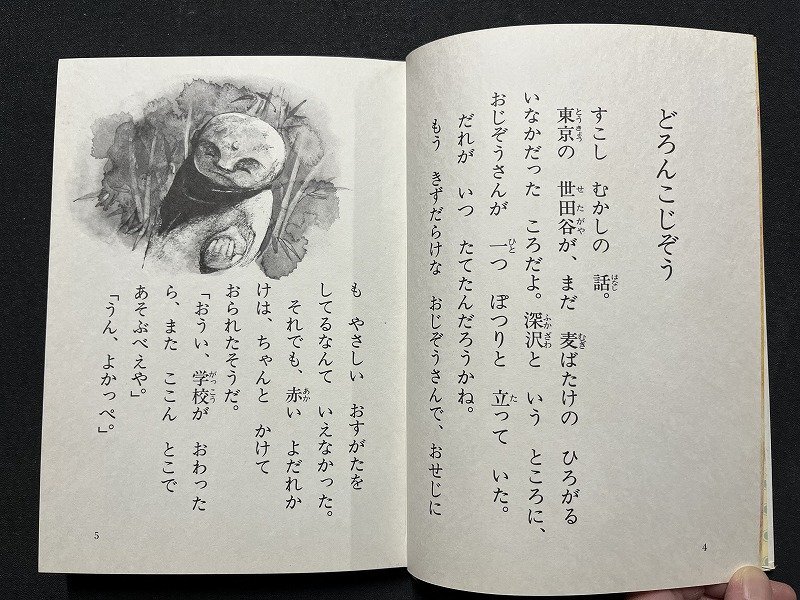 どろんこじぞう
すこし むかしの 話。
東京の 世田谷が、まだ 麦ばたけの ひろがる
いなかだった ころだよ。深沢と いう ところに、
おじぞうさんが 一つ ぽつりと 立って いた。
だれが いつ たてたんだろうかね。
もう きずだらけな おじぞうさんで、おせじに
4
も やさしい おすがたを
してるなんて いえなかった。
それでも、赤い よだれか
けは、ちゃんと かけて
おられたそうだ。
「おうい、学校が おわった
ら、また ここん とこで
あそぶべえや」
「うん、よかっぺ。」
5